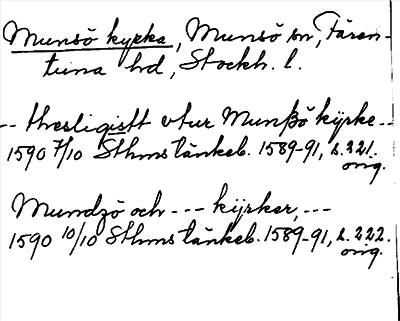 Munsö kyrka, Munsö sn, Fären-
tuna hd, Stockh. l.
-- thesligistt vtur Munßö kÿrke --
1590 7/10 Sthms tänkeb. 1589-91, s. 221.
orig.
Mundzö och --- kÿrker, ---
1590 10/10 Sthms tänkeb. 1589-91, s. 222.
orig.